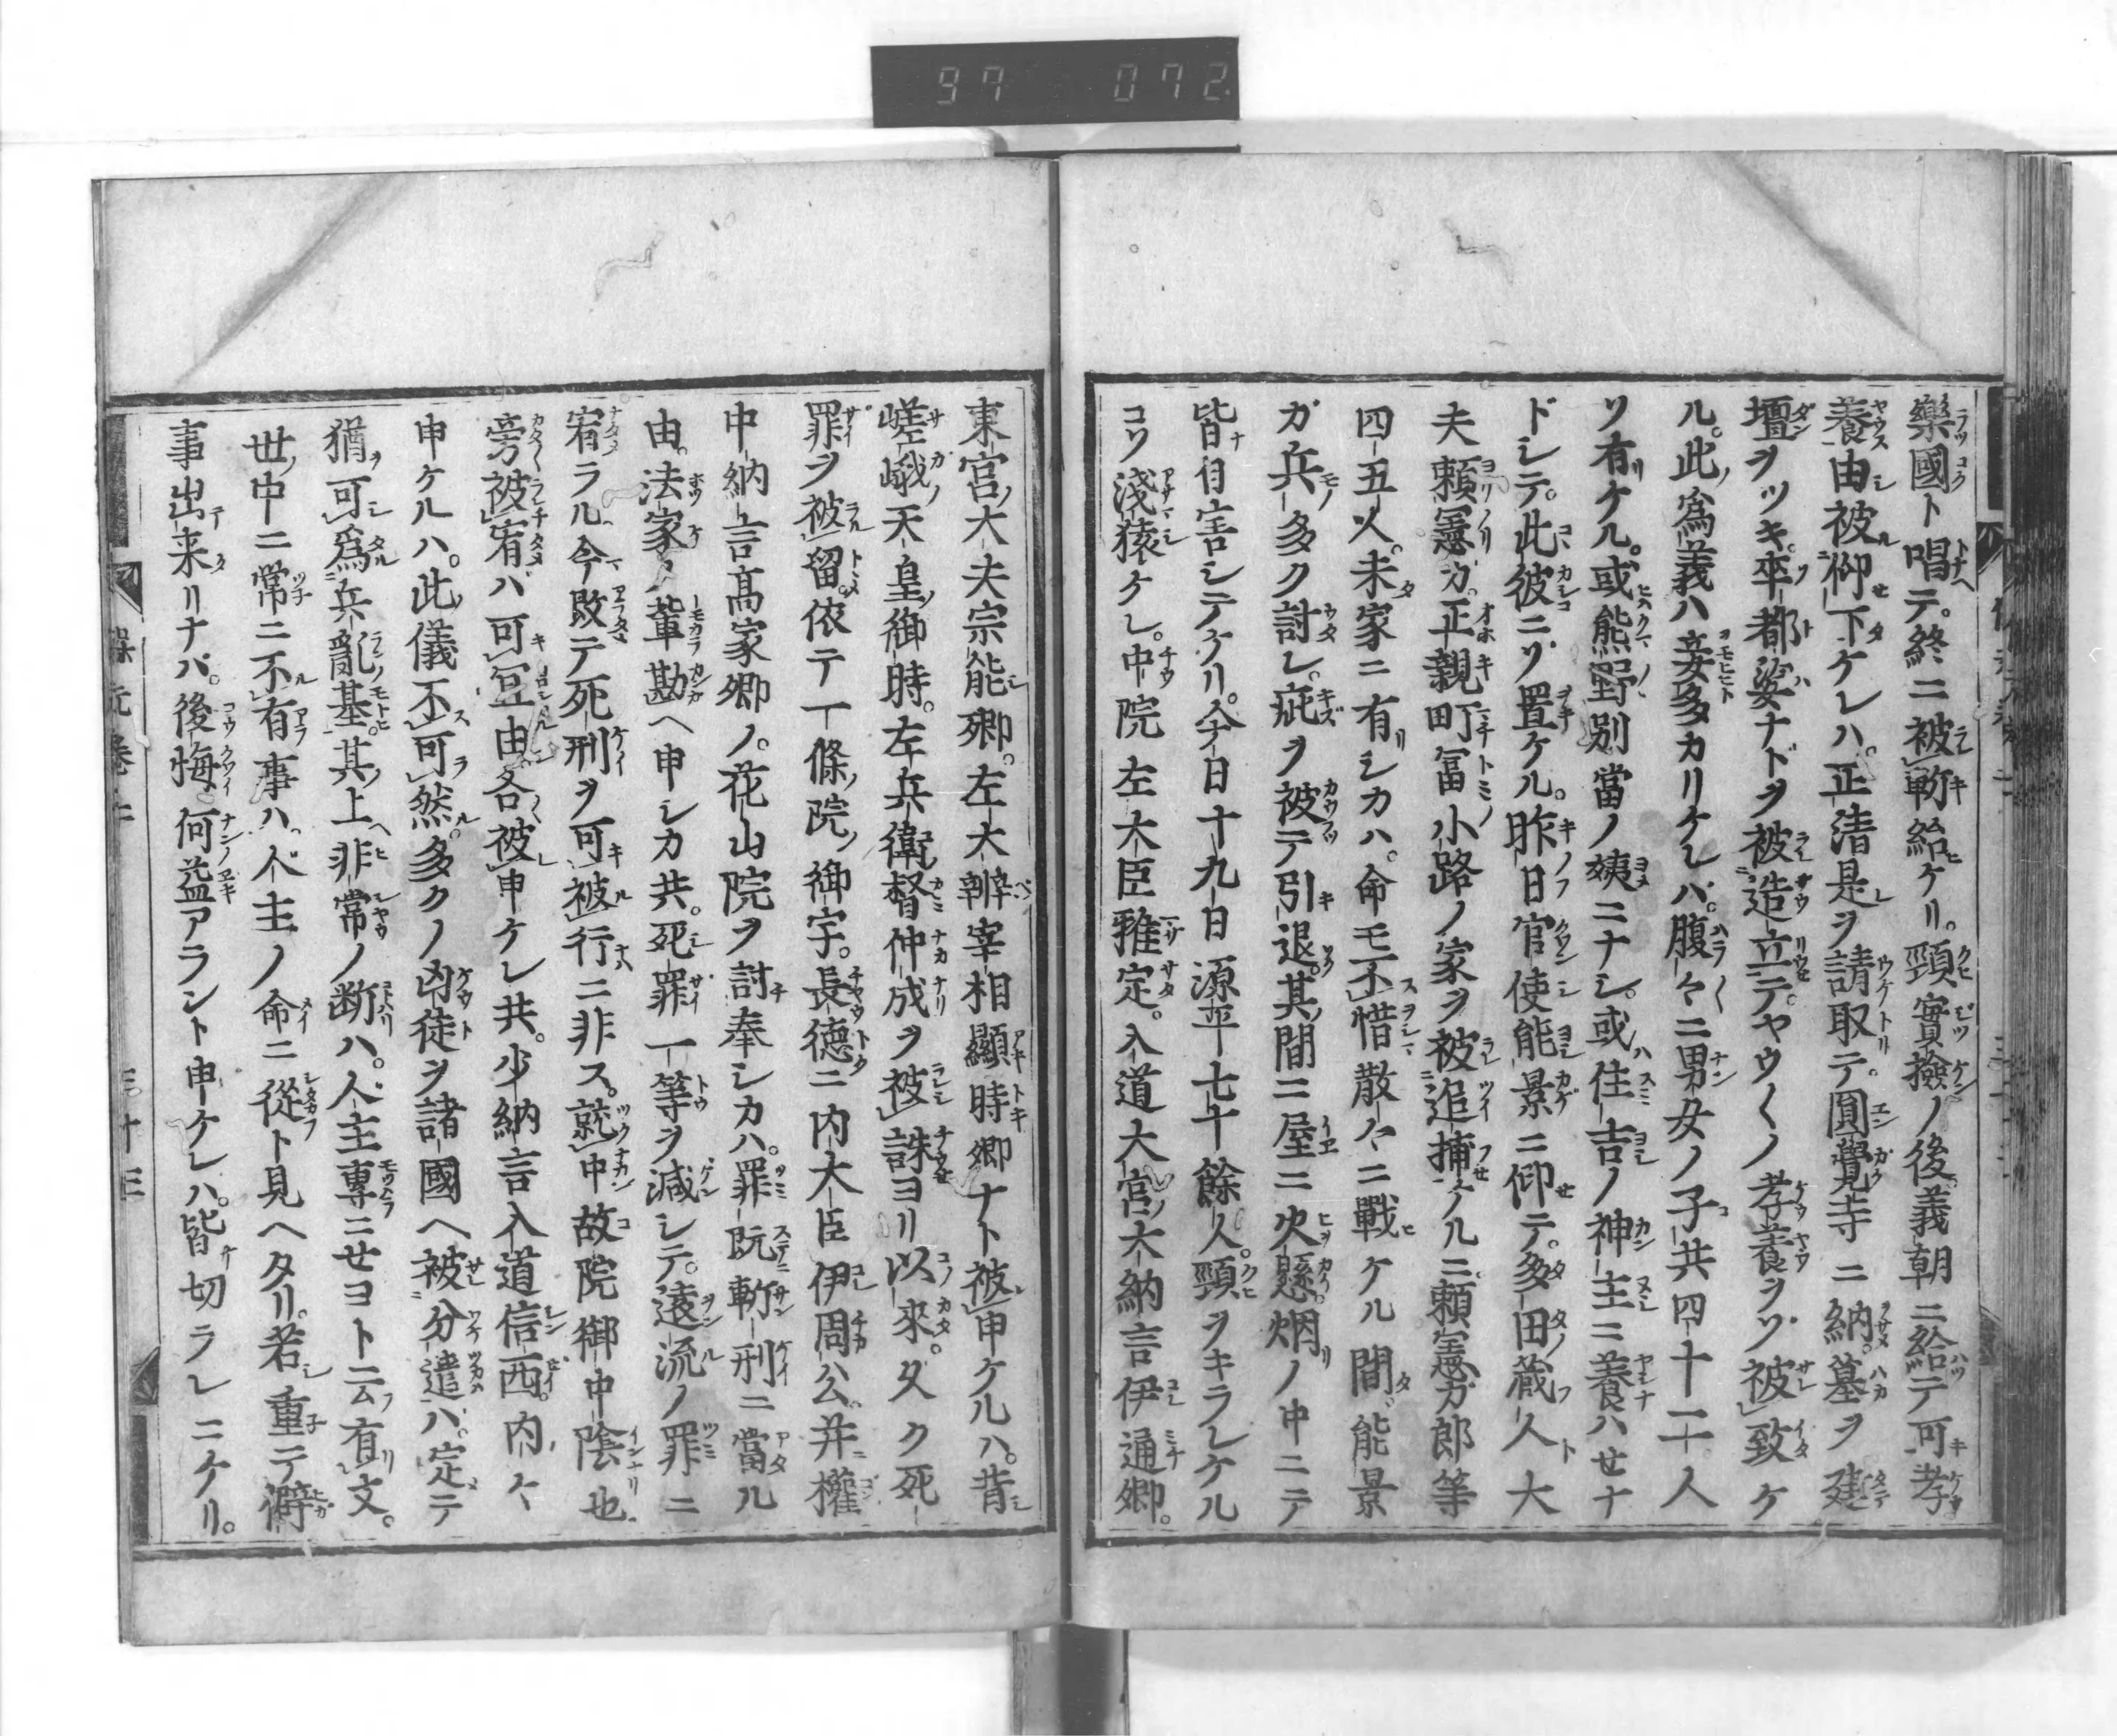 97 072
樂國ト唱テ。終ニ被斬給ケリ。頸實撿ノ後義朝ニ給テ可孝
養由被仰下ケレハ。正清是ヲ請取テ。圓覺寺ニ納。墓ヲ建
壇ヲツキ。卒都婆ナドヲ被造立テ。ヤウ〱ノ孝養ヲソ被致ケ
ル。此爲義ハ妾多カリケレバ。腹々ニ男女ノ子共四十二人
ソ有ケル。或熊野別當ノ姨ニナシ。或住吉ノ神主ニ養ハセナ
ドシテ。此彼ニソ置ケル。昨日官使能景ニ仰テ。多田蔵人大
夫頼憲カ。正親町冨小路ノ家ヲ被追捕ケルニ。頼憲ガ郎等
四五人。未家ニ有シカハ。命モ不惜散々ニ戰ケル間。能景
ガ兵多ク討レ。疵ヲ被テ引退。其間ニ屋ニ火懸。烟ノ中ニテ
皆自害シテケリ。今日十九日源平七十餘人。頸ヲキラレケル
コソ淺猿ケレ。中院左大臣雅定。入道大宮大納言伊通卿。
東宮大夫宗能卿。左大辨宰相顯時卿ナト被申ケルハ。昔
嵯峨天皇御時。左兵衞督仲成ヲ被誅ヨリ以來。久ク死
罪ヲ被留。依テ一條院御宇。長德ニ内大臣伊周公。并權
中納言髙家卿ノ。花山院ヲ討奉シカハ。罪既斬刑ニ當ル
由。法家ノ輩勘ヘ申シカ共。死罪一等ヲ減シテ。遠流ノ罪ニ
宥ラル。今改テ死刑ヲ可被行ニ非ス。就中故院御中陰也
旁被宥バ可冝由各被申ケレ共。少納言入道信西。内々
申ケルハ。此儀不可然。多クノ凶徒ヲ諸國ヘ被分遣ハ。定テ
猶可爲兵亂基。其上非常ノ断ハ。人主專ニセヨト云有文。
世中ニ常ニ不有事ハ。人主ノ命ニ從ト見ヘタリ。若重テ僻
事出来リナバ。後悔何益アラント申ケレハ。皆切ラレニケリ。
保元卷二
三十三